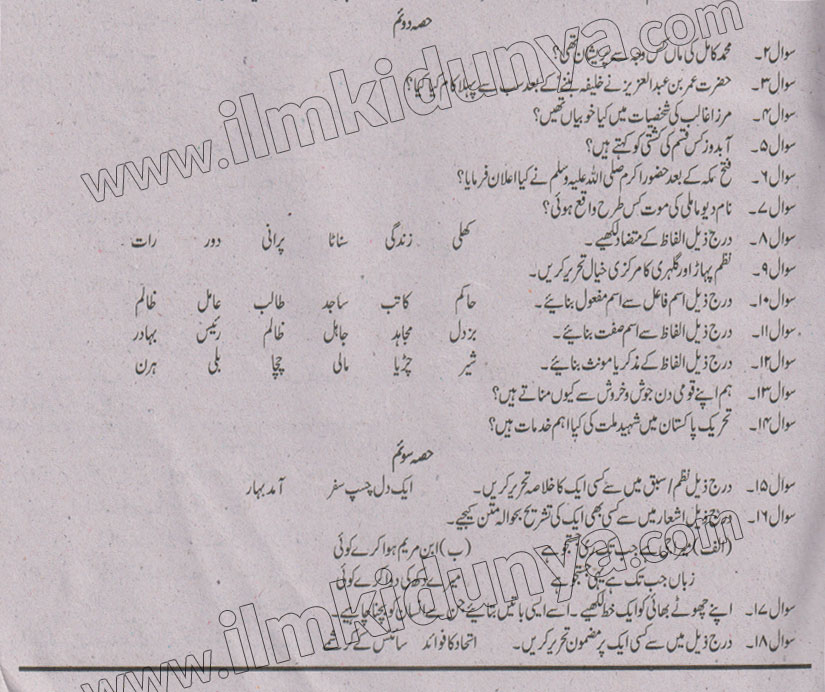 حصہ دوئم
سوال ۲۔ محمد کامل کی ماں کس وجہ سے پریشان تھی؟
سوال ۳۔ حضرت عمر بن عبدالعزیز نے خلیفہ بننے کے بعد سب سے پہلا کام کیا کیا؟
سوال ۴۔ مرزا غالب کی شخصیات میں کیا خوبیاں تھیں؟
سوال ۵۔ آبدوز کس قسم کی کشتی کو کہتے ہیں؟
سوال ۶۔ فتح مکہ کے بعد حضور اکرم صلی اللہ علیہ وسلم نے کیا اعلان فرمایا؟
سوال ۷۔ نام دیو مالی کی موت کس طرح واقع ہوئی؟
سوال ۸۔ درج ذیل الفاظ کے متضاد لکھیے۔ کھلی زندگی سناٹا پرانی دور رات
سوال ۹۔ نظم پہاڑ اور گلہری کا مرکزی خیال تحریر کریں۔
سوال ۱۰۔ درج ذیل اسم فاعل سے اسم مفعول بنائیے۔ حاکم کاتب ساجد طالب عامل ظالم
سوال ۱۱۔ درج ذیل الفاظ سے اسم صفت بنائیے۔ بزدل مجاہد جاہل ظالم رئیس بہادر
سوال ۱۲۔ درج ذیل الفاظ کے مذکر یا مونث بنائیے۔ شیر چڑیا مالی چچا بلی ہرن
سوال ۱۳۔ ہم اپنے قومی دن جوش و خروش سے کیوں مناتے ہیں؟
سوال ۱۴۔ تحریک پاکستان میں شہید ملت کی کیا اہم خدمات ہیں؟
حصہ سوئم
سوال ۱۵۔ درج ذیل نظم/سبق میں سے کسی ایک کا خلاصہ تحریر کریں۔ ایک دل چسپ سفر آمد بہار
سوال ۱۶۔ درج ذیل اشعار میں سے کسی بھی ایک کی تشریح بحوالہ متن کیجیے۔
(الف) جب تک جستجو ہے (ب) ابن مریم ہوا کرے کوئی
زباں جب تک ہے یہی گفتگو ہے میرے دکھ کی دوا کرے کوئی
سوال ۱۷۔ اپنے چھوٹے بھائی کو ایک خط لکھیے۔ اسے ایسی باتیں بتائیے جن سے انسان کو بچنا چاہیے۔
سوال ۱۸۔ درج ذیل میں سے کسی ایک پر مضمون تحریر کریں۔ اتحاد کا فوائد سائنس کے کرشمے
www.ilmkidunya.com
www.ilmkidunya.com